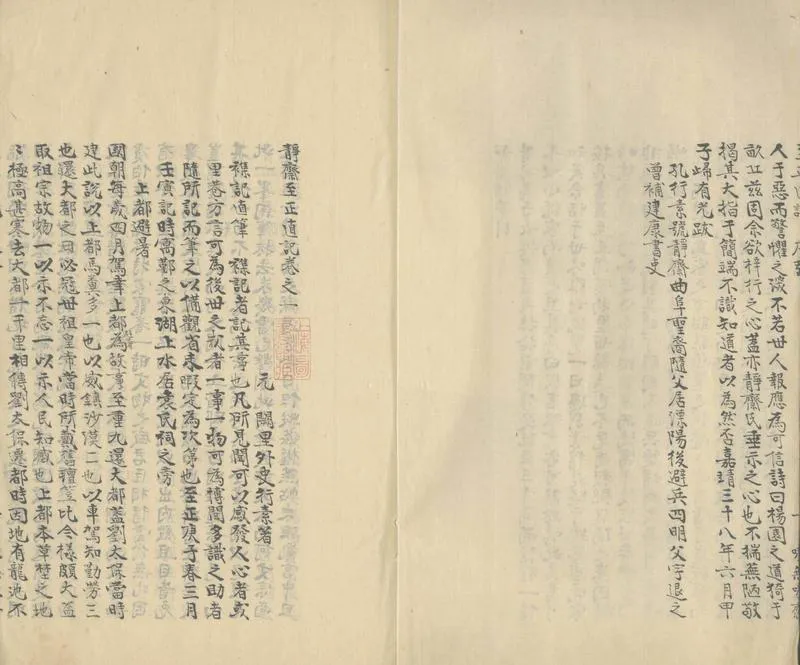 人于惡而警懼之深不若世人報應為可信詩曰楊園之道猗于
畝丘兹固余欲梓行之心蓋亦靜齋氏垂示之心也不揣蕪陋敬
揭其大指于簡端不識知道者以為然否嘉靖三十八年六月甲
子歸有光跋
孔行素號靜齋曲阜聖裔隨父居溧陽後避兵四明父字退之
曾補建康書吏
靜齋至正直記卷之一
元 闕里外史行素著
襍記直筆 襍記者記其事也凡所見聞可以感發人心者或
里巷方言可為後世之歎者一事一物可為博聞多識之助者
隨所記而筆之以備觀省未暇定為次第也至正庚子春三月
壬寅記時寓鄞之東湖上水居袁氏祠之旁
上都避暑
國朝每歲四月駕幸上都為故事至重九還大都蓋劉太保當時
建此說以上都馬糞多一也以威鎮沙漠二也以車駕知勤勞三
也還大都之日必冠世祖皇帝當時所戴舊氊笠比今樣頗大蓋
取祖宗故物一以示不忘一以示人民知感也上都本草野之地
極高甚寒去大都一千里相傳劉太保遷都時因地有龍池不